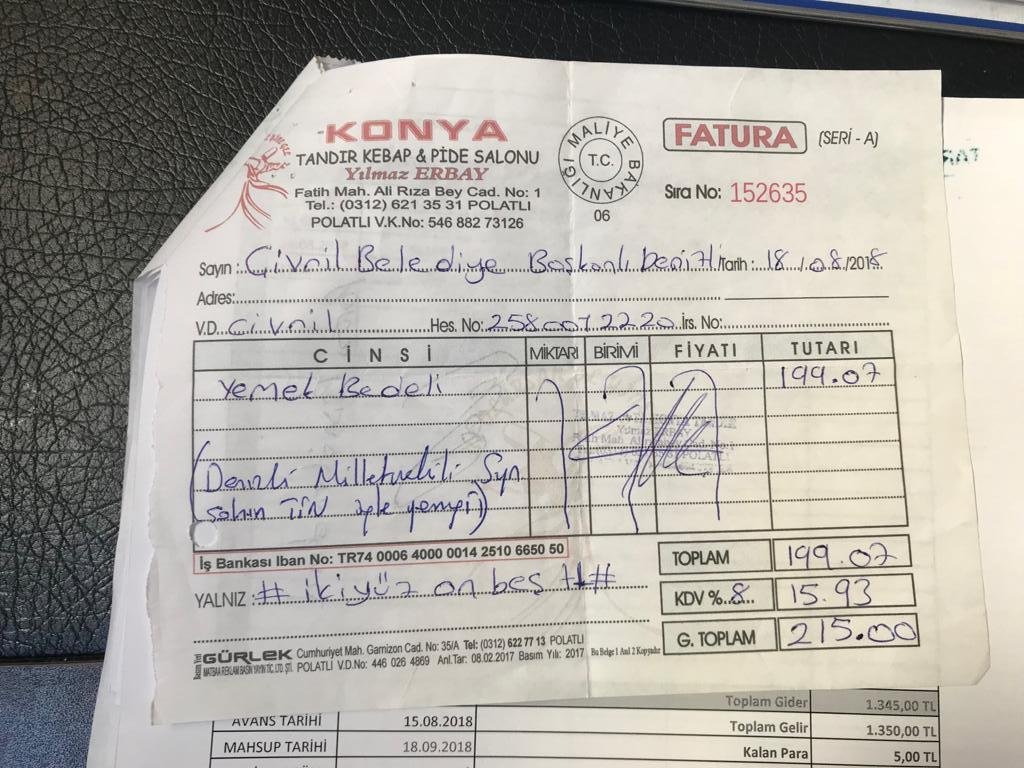 KONYA
TANDIR KEBAP & PİDE SALONU
Yılmaz ERBAY
Fatih Mah. Ali Rıza Bey Cad. No: 1
Tel.: (0312) 621 35 31 POLATLI
POLATLI V.K.No: 546 882 73126
T.C.
MALİYE BAKANLIĞI
06
FATURA (SERİ - A)
Sıra No: 152635
Sayın : Çivril Belediye Başkanlı Denizli Tarih : 18/08/2018
Adres:
V.D. Çivril Hes. No: 2580072220 İrs. No:
CİNSİ MİKTARI BİRİMİ FİYATI TUTARI
Yemek Bedeli 199.07
(Denizli Milletvekili Syn
Şahin TİN öğle yemeği)
İş Bankası Iban No: TR74 0006 4000 0014 2510 6650 50
TOPLAM 199.07
YALNIZ : # ikiyüz on beş tl #
KDV % 8 15.93
G. TOPLAM 215.00
GÜRLEK Cumhuriyet Mah. Garnizon Cad. No: 35/A Tel: (0312) 622 77 13 POLATLI
MATBAA REKLAM BASIN YAYIN TİC. LTD. ŞTİ. POLATLI V.D.No: 446 026 4869 Anl.Tar: 08.02.2017 Basım Yılı: 2017 Bu Belge 1 Asıl 2 Kopyadır
Toplam Gider 1.345,00 TL
AVANS TARİHİ 15.08.2018 Toplam Gelir 1.350,00 TL
MAHSUP TARİHİ 18.09.2018 Kalan Para 5,00 TL